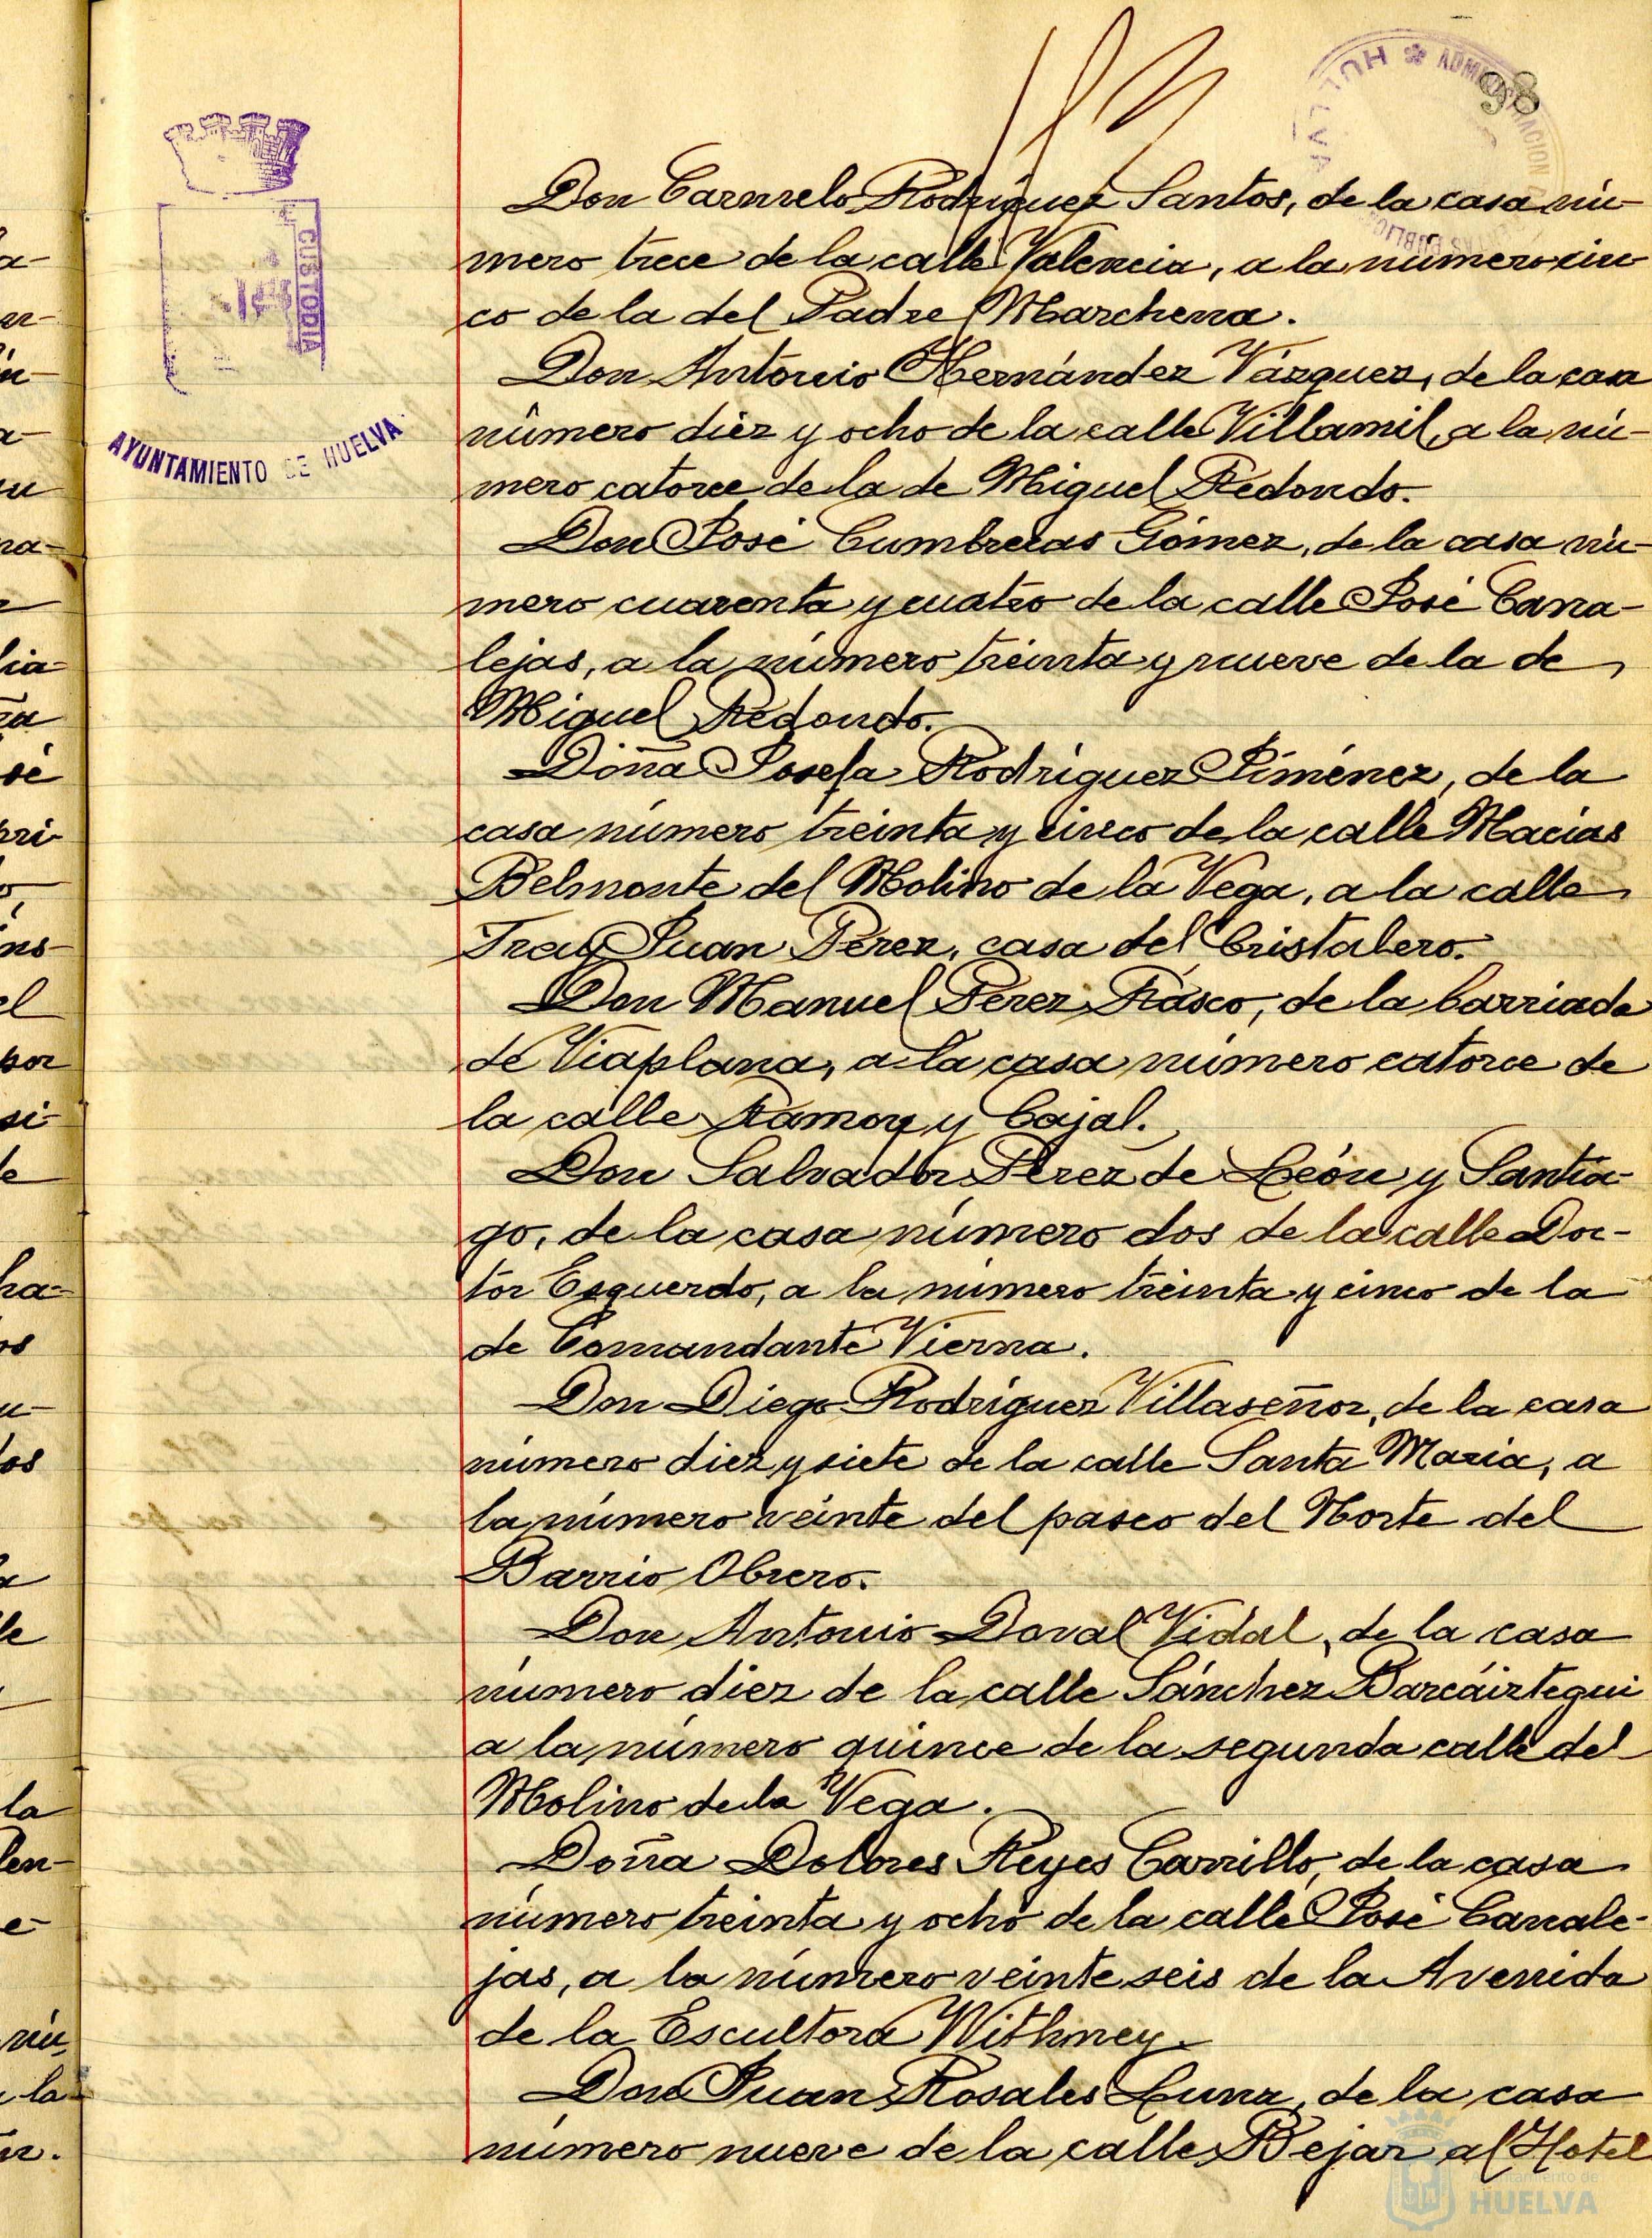 98
HUELVA * ADMINISTRACION
CUSTODIA
AYUNTAMIENTO DE HUELVA
Don Carmelo Rodríguez Santos, de la casa nú-
mero trece de la calle Valencia, a la número cin
co de la del Padre Marchena.
Don Antonio Hernández Vázquez, de la casa
número diez y ocho de la calle Villamil, a la nú-
mero catorce de la de Miguel Redondo.
Don José Cumbreras Gómez, de la casa nú-
mero cuarenta y cuatro de la calle José Cana-
lejas, a la número treinta y nueve de la de
Miguel Redondo.
Doña Josefa Rodríguez Jiménez, de la
casa número treinta y cinco de la calle Macías
Belmonte del Molino de la Vega, a la calle
Fray Juan Pérez, casa del Cristalero.
Don Manuel Pérez Rasco, de la barriada
de Viaplana, a la casa número catorce de
la calle Ramon y Cajal.
Don Salvador Pérez de León y Santia-
go, de la casa número dos de la calle Doc-
tor Esquerdo, a la número treinta y cinco de la
de Comandante Vierna.
Don Diego Rodríguez Villaseñor, de la casa
número diez y siete de la calle Santa María, a
la número veinte del paseo del Norte del
Barrio Obrero.
Don Antonio Doval Vidal, de la casa
número diez de la calle Sánchez Barcáiztegui
a la número quince de la segunda calle del
Molino de la Vega.
Doña Dolores Reyes Carrillo, de la casa
número treinta y ocho de la calle José Canale-
jas, a la número veinte seis de la Avenida
de la Escultora Withney.
Don Juan Rosales Luna, de la casa
número nueve de la calle Bejar al Hotel
Ayuntamiento de
HUELVA